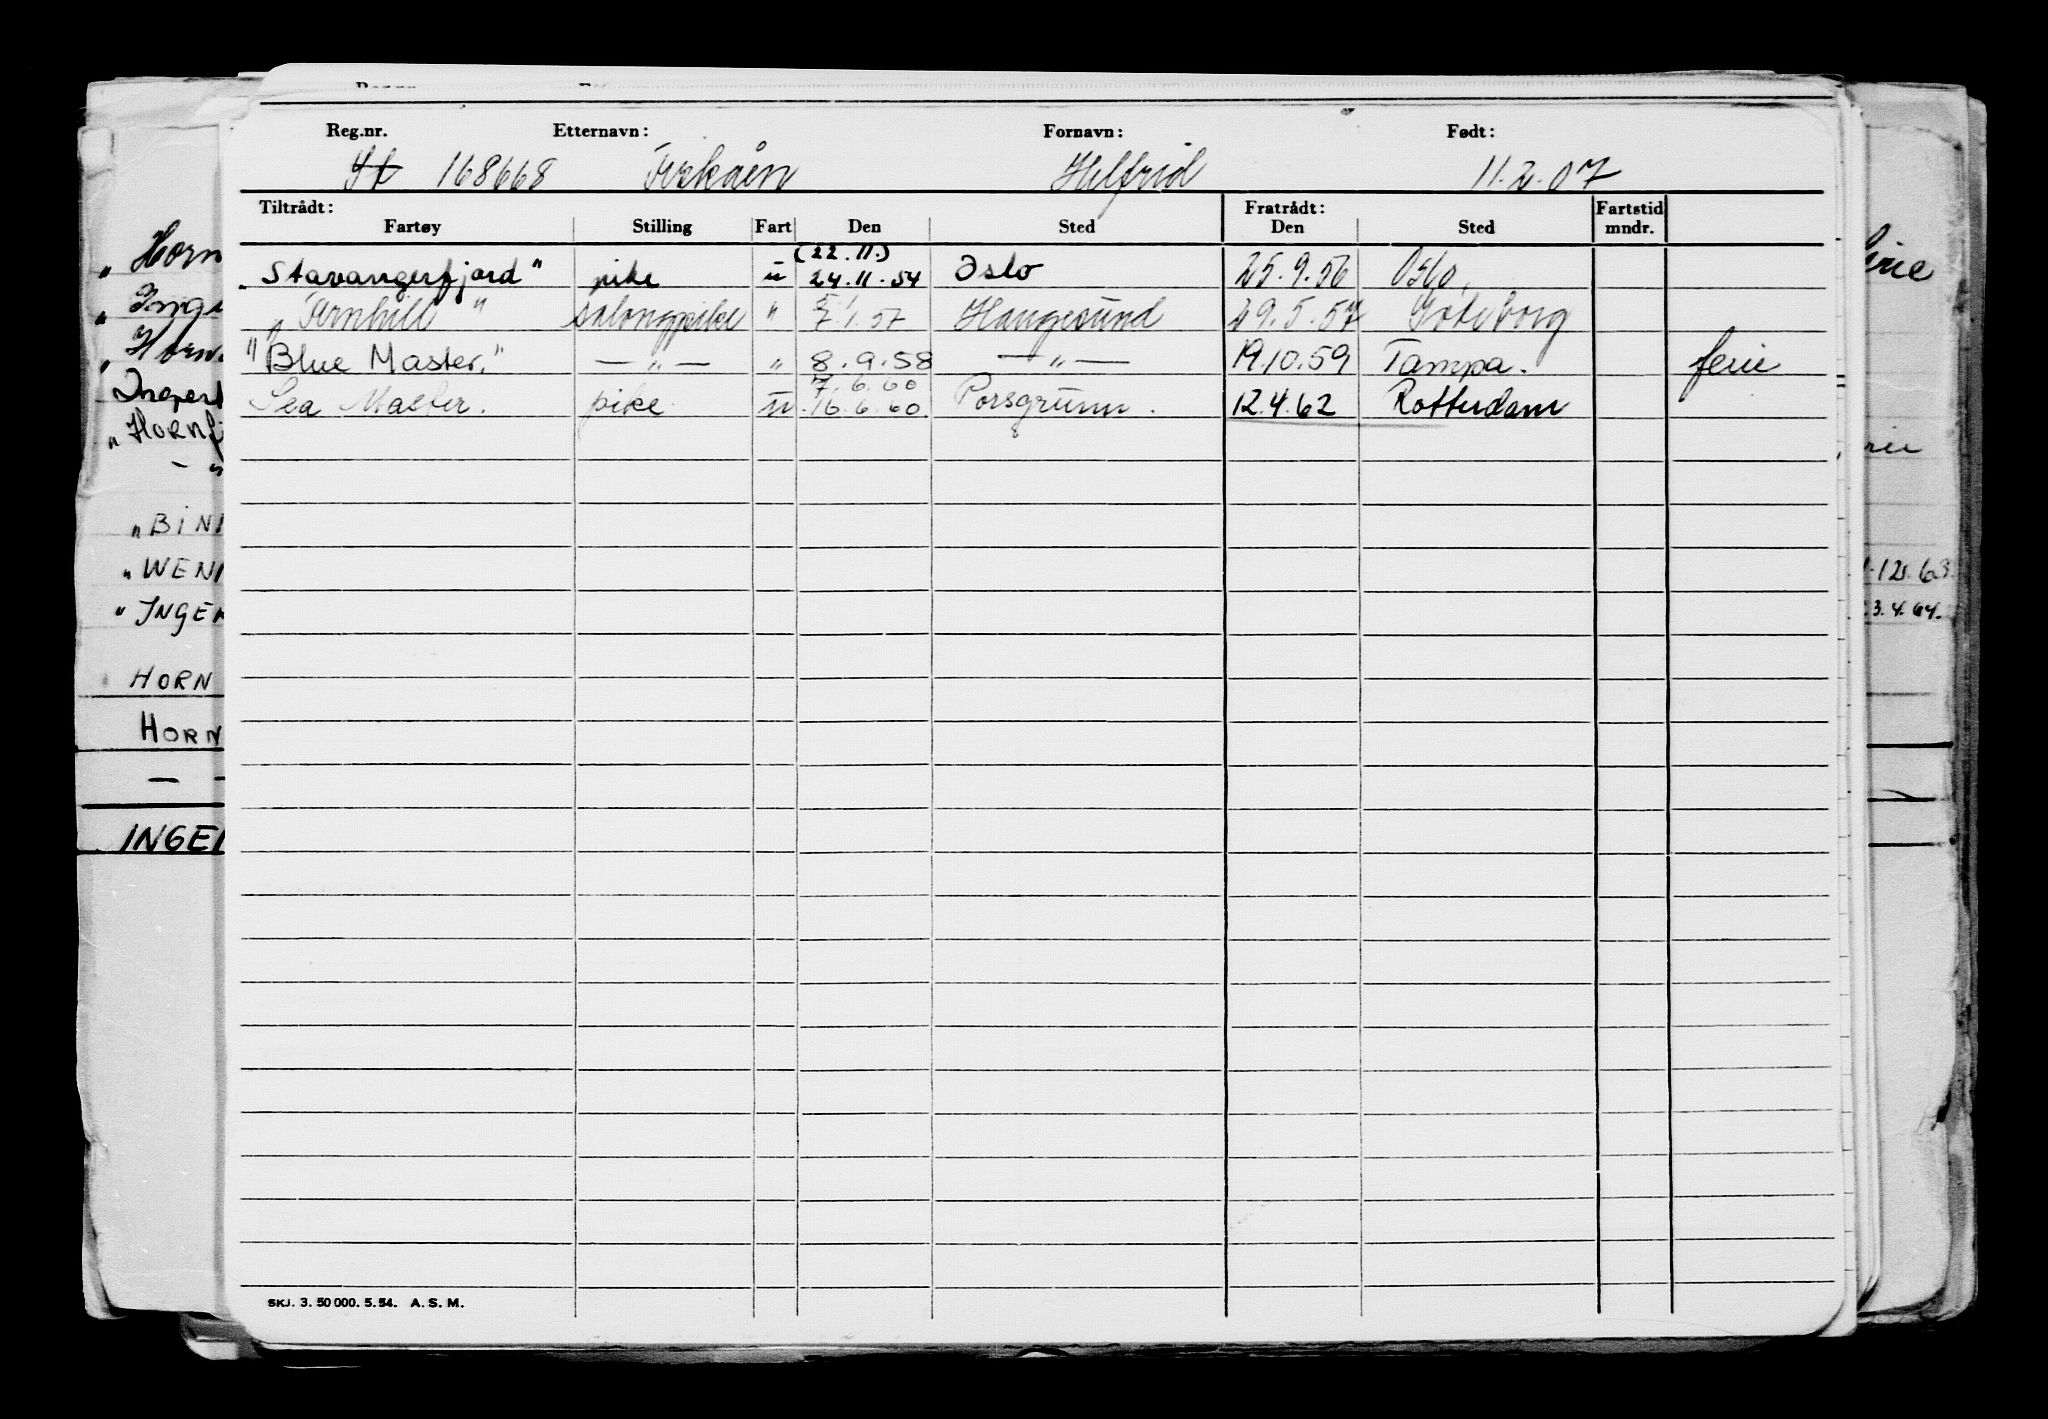 Reg.nr. Etternavn: Fornavn: Født:
168668 Helfrid 11.2.07
Tiltrådt: Fratrådt: Fartstid
Fartøy Stilling Fart Den Sted Den Sted mndr.
(22.11.)
"Stavangerfjord" pike u 24.11.54 Oslo 25.9.56 Oslo.
"Fernhill" salongpike " 7.1.57 Haugesund 29.5.57 Göteborg
"Blue Master." — " — " 8.9.58 — " — 19.10.59 Tampa. ferie
7.6.60
Sea Master. pike u. 16.6.60. Porsgrunn. 12.4.62 Rotterdam
8
SKJ. 3. 50 000. 5. 54. A. S. M.
" Horn
" Inge
" Horn
Ingert
" HORNFJ
— "
" BIN
" WEN
" INGER
HORN
HORN
— -
INGE
erie
rie
.12.63
3.4.64.